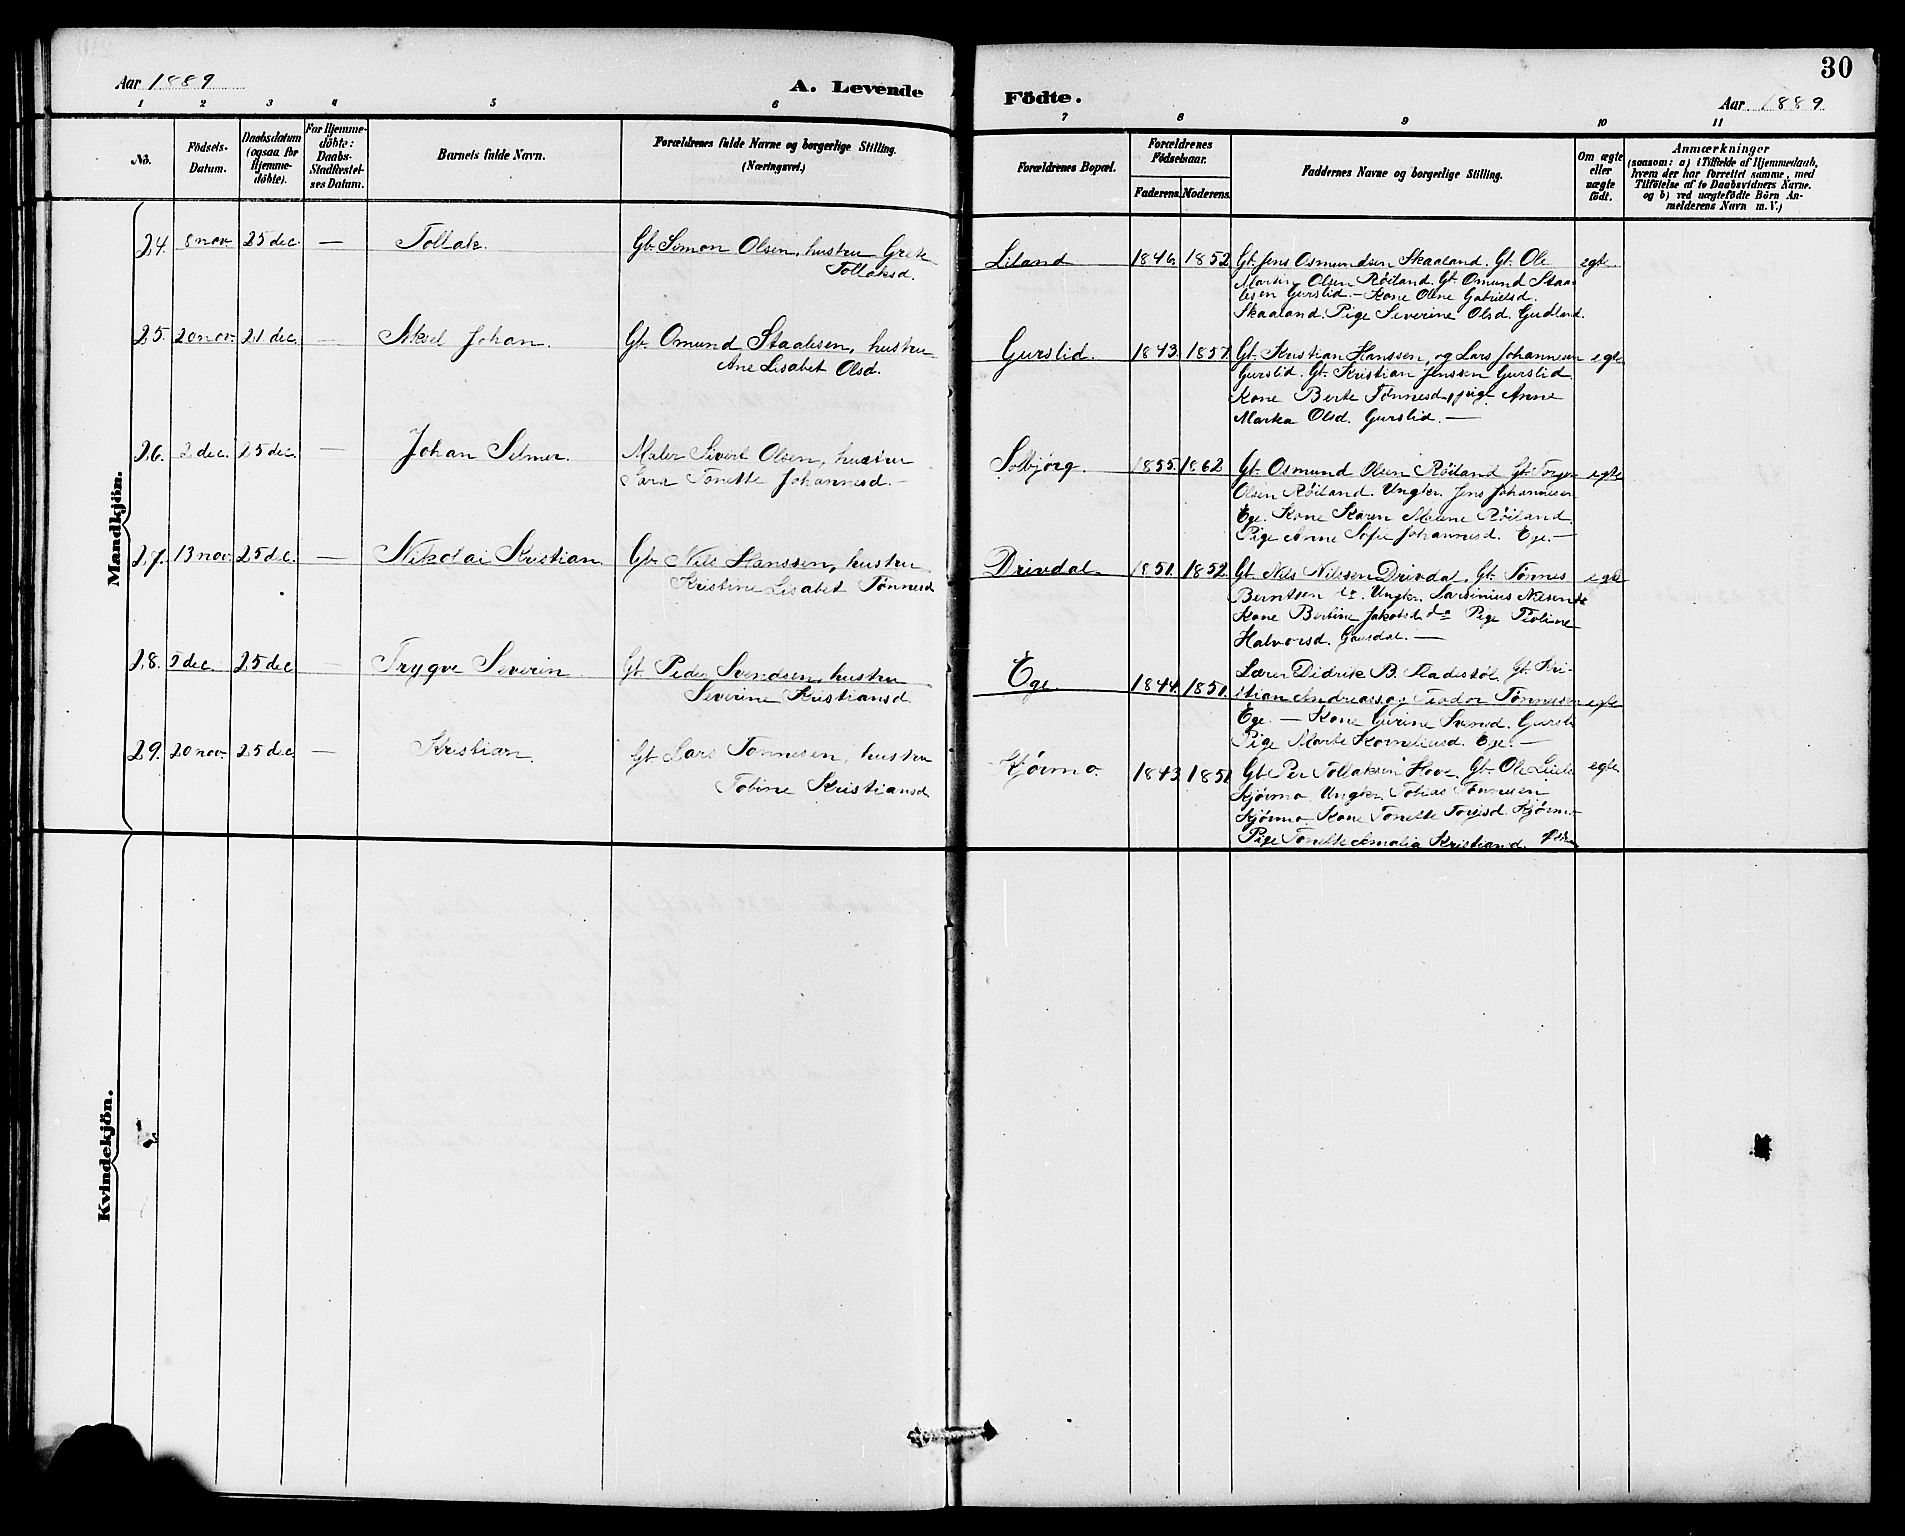 30
Aar 1889 A. Levende Födte. Aar 1889
1 2 3 4 5 6 7 8 9 10 11
No.
Födsels-
Datum.
Daabsdatum
(ogsaa for
Hjemme-
döbte).
For Hjemme-
döbte:
Daabs-
Stadfæstel-
ses Datum.
Barnets fulde Navn.
Forældrenes fulde Navne og borgerlige Stilling.
(Næringsvei.)
Forældrenes Bopæl.
Forældrenes
Födselsaar.
Faderens. Moderens.
Faddernes Navne og borgerlige Stilling.
Om ægte
eller
uægte
födt.
Anmærkninger
(saasom: a) i Tilfælde af Hjemmedaab,
hvem der har forrettet samme, med
Tilföielse af to Daabsvidners Navne.
og b) ved uægtefödte Börn An-
melderens Navn m. V.)
Mandkjön.
24. 8 nov 25 dec. — Tollak. Gb. Simon Olsen, hustru Grete
Tollaksd.
Liland 1846. 1852 Gb. Jens Osmundsen Skaaland. Gb. Ole egte
Martin Olsen Röiland. Gb. Omund Staa-
lesen Gurslid. — Kone Oline Gabrielsd.
Skaaland. Pige Severine Olsd. Gudland.
25. 20 nov. 21 dec. — Aksel Johan. Gb. Omund Staalesen, hustru
Ane Lisabet Olsd.
Gurslid. 1843. 1857 Gb. Kristian Hanssen, og Lars Johannesen egte
Gurslid. Gb. Kristian Jenssen Gurslid.
Kone Berte Tønnesd, pige Anne
Marta Olsd. Gurslid. —
26. 2 dec. 25 dec. — Johan Selmer. Maler Sivert Olsen, hustru
Sara Tonette Johannesd. —
Solbjørg. 1855. 1862 Gb. Osmund Olsen Røiland Gb. Torger egte
Olsen Røiland. Ungkr. Jens Johannesen
Ege. Kone Karen Røiland.
Pige Anne Sofie Johannesd. Ege. —
27. 13 nov. 25 dec. — Nikolai Kristian. Gb. Nils Hanssen, hustru
Kristine Lisabet Tønnesd
Drivdal. 1851. 1852. Gb. Nils Nilssen Drivdal. Gb. Tønnes egte
Berntsen do. Ungkr. Sarsinius Nilsen do
Kone Bertine Jakobsd. do Pige
Halvorsd. —
28. 5 dec. 25 dec — Trygve Severin. Gb. Peder Svendsen, hustru
Severine Kristiansd
Ege. 1844. 1851. Lærer Didrik B. Gb. Kri-
stian Andreass og Teodor Tønnessen egte
Ege. — Kone Gurine Svensd. Gursli
Pige Marte Korneliusd. Ege. —
29. 20 nov. 25 dec — Kristian. Gb Lars Tønnesen, hustru
Tobine Kristiansd
Kjørmo. 1843 1851 Gb. Per Tollaksen Hove. Gb. Ole egte
Kjørmo Ungkr. Tobias Tønnesen
Kjørmo. Kone Tonette Kjørmo
Pige Tonette Amalia Kristiansd.
Kvindekjön.